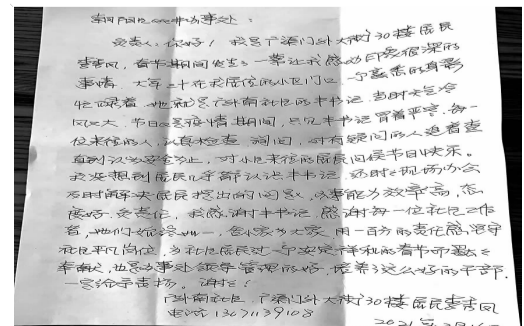 朝阳区办事处:
负责人:你好!我是广渠门外大街30楼居民
李秀凤,春节期间发生了一幕让我感动印象很深的
事情。大年三十在我居住的小区门口,一个熟悉的身影
忙碌着,她就是广外南社区的书记。当时天气冷
风又大,节日又是疫情期间,只见书记冒着严寒,每一
位来往的人,认真检查、询问,对有疑问的人追着查
直到认为安全为止,对小区来往的居民问候节日快乐。
我没想到居民几乎都认识书记,还时时现场办公
及时解决居民提出的问题,办事能力效率高,态
度好,负责任,我感谢书记,感谢每一位社区工作
者,她们始终如一,舍小家为大家,用一百分的责任感,坚守
社区平凡岗位,为社区居民过一个安定祥和的春节而默默
奉献,也是办事处领导管理的好,培养了这么好的干部。
一定给予表扬。谢谢!
广外南社区 广渠门外大街30楼居民李秀凤
电话13671139108
2021年2月